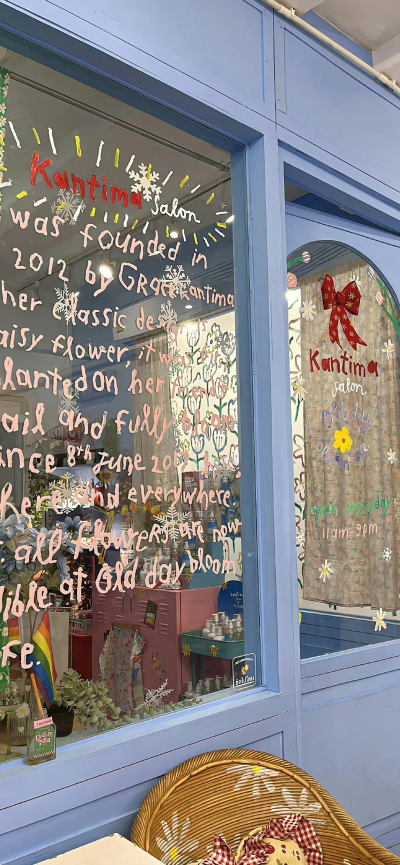 Kantima
salon
was founded in
2012 by Grace Kantima
her classic
aisy flower, it was
lanted on her
ail and fully bloom
ince 8th June
here and everywhere
all flowers are now
ible at Old day bloom
fe.
Kantima
salon
open everyday
11am-9pm